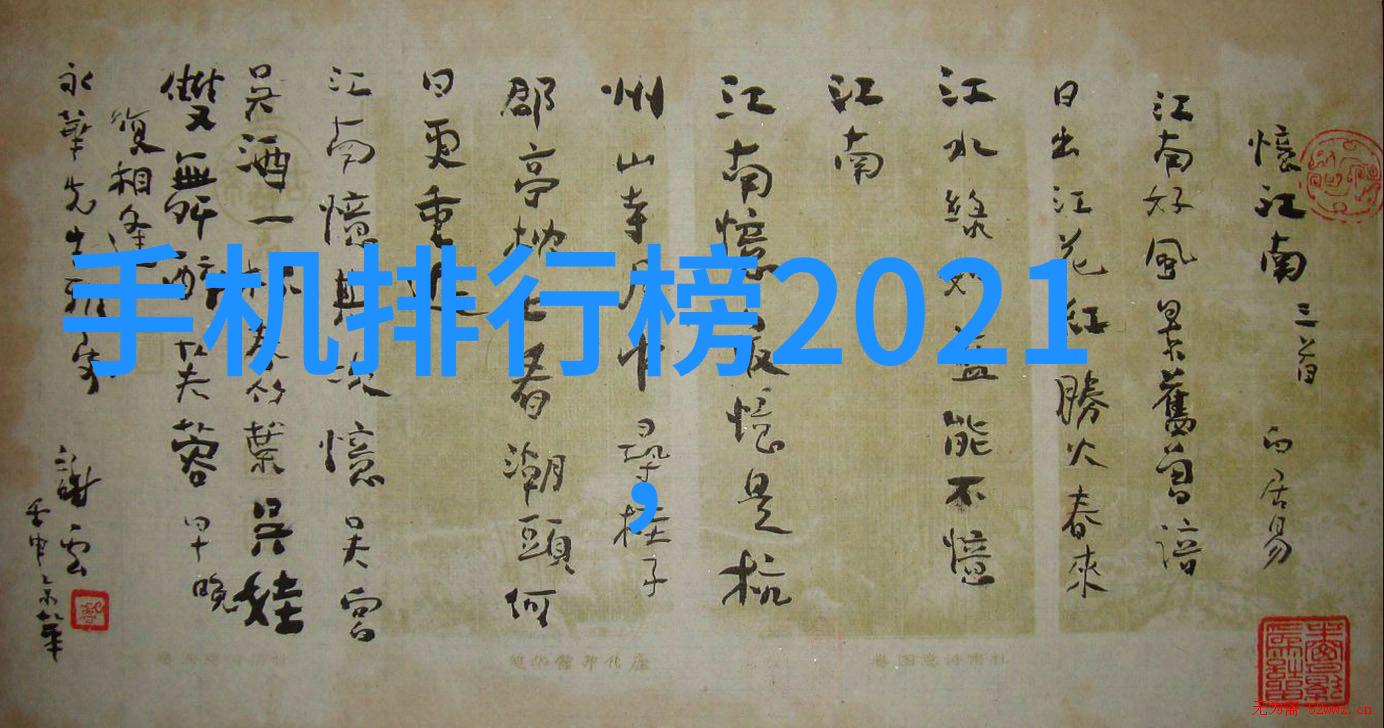 憶江南 三首 白居易
江南好風景舊曽諳
日出江花紅勝火春來
江水綠如藍能不憶
江南
江南憶最憶是杭
州山寺月中尋桂子
郡亭枕上看潮頭何
日更重遊
江南憶其次憶吳宮
吳酒一杯春竹葉吳娃
雙舞醉芙蓉早晚
復相逢
永華先生
謝雲
手机排行榜2021
，
无为斋 52wwz.cn